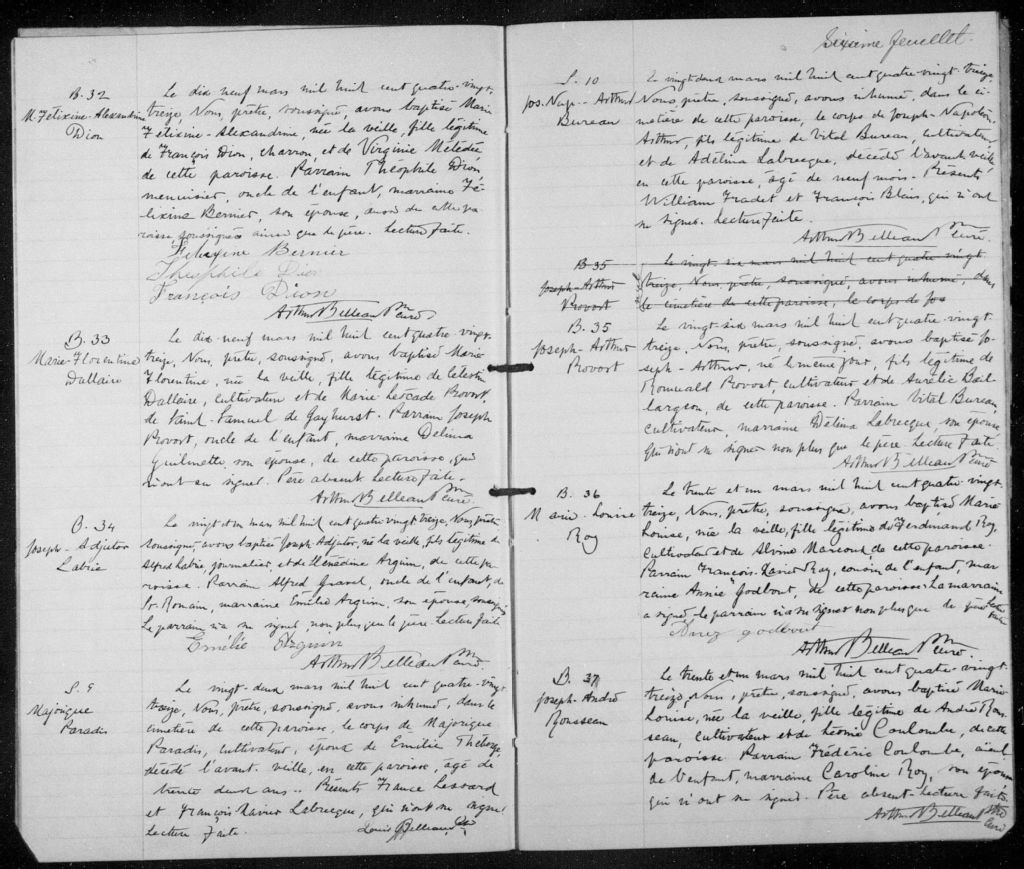 B. 32
M. Félixine-Alexandrine
Dion
Le dix neuf mars mil huit cent quatre-vingt-
treize, Nous, prêtre, soussigné, avons baptisé Marie
Félixine-Alexandrine, née la veille, fille légitime
de François Dion, charron, et de Virginie
de cette paroisse. Parrain Théophile Dion
menuisier, oncle de l'enfant, marraine Fé-
lixine Bernier, son épouse, de cette pa-
roisse, soussignés ainsi que le père. Lecture faite.
Félixine Bernier
Théophile Dion
François Dion
Arthur Belleau Ptre curé
B. 33
Marie-Florentine
Dallaire
Le dix neuf mars mil huit cent quatre-vingt-
treize, Nous, prêtre, soussigné, avons baptisé Marie
Florentine, née la veille, fille légitime de Célestin
Dallaire, cultivateur et de Marie Léocade Provost,
de Saint-Samuel de Gayhurst. Parrain Joseph
Provost, oncle de l'enfant, marraine Délima
Guilmette, son épouse, de cette paroisse, qui
n'ont su signer. Père absent. Lecture faite.
Arthur Belleau Ptre curé
B. 34
Joseph-Adjutor
Labrie
Le vingt et un mars mil huit cent quatre-vingt-treize, Nous, prêtre
soussigné, avons baptisé Joseph Adjutor, né la veille, fils légitime de
Alfred Labrie, journalier, et de Arguin, de cette pa-
roisse. Parrain Alfred Gravel, oncle de l'enfant, de
St-Romain, marraine Emélie Arguin, son épouse, soussignée
Le parrain n'a su signer, non plus que le père. Lecture faite
Emélie Arguin
Arthur Belleau Ptre curé.
S. 9
Majorique
Paradis
Le vingt-deux mars mil huit cent quatre-vingt
treize, Nous, prêtre, soussigné, avons inhumé, dans le
cimetière de cette paroisse, le corps de Majorique
Paradis, cultivateur, époux de Emilie
décédé l'avant-veille, en cette paroisse, âgé de
trente deux ans. Présents Lessard
et François-Xavier Labrecque, qui n'ont su signer
Lecture faite.
Louis Belleau
Sixième feuillet.
S. 10
Jos. Nap.-Arthur
Bureau
Le vingt deux mars mil huit cent quatre-vingt-treize,
Nous, prêtre, soussigné, avons inhumé, dans le ci-
metière de cette paroisse, le corps de Joseph-Napoléon,
Arthur, fils légitime de Vital Bureau, cultivateur,
et de Adelina Labrecque, décédé l'avant veille,
en cette paroisse, âgé de neuf mois. Présents
William Fradet et François Blais, qui n'ont
su signer. Lecture faite.
Arthur Belleau Ptre curé.
B 35
Joseph-Arthur
Provost
Le vingt-six mars mil huit cent quatre-vingt
treize, Nous, prêtre, soussigné, avons inhumé, dans
le cimetière de cette paroisse, le corps de Jos
B. 35
Joseph-Arthur
Provost
Le vingt-six mars mil huit cent quatre-vingt-
treize, Nous, prêtre, soussigné, avons baptisé Jo-
seph-Arthur, né le même jour, fils légitime de
Romuald Provost, cultivateur et de Aurélie Bail-
largeon, de cette paroisse. Parrain Vital Bureau,
cultivateur, marraine Délima Labrecque, son épouse
qui n'ont su signer non plus que le père. Lecture faite
Arthur Belleau Ptre curé
B. 36
Marie-Louise
Roy
Le trente et un mars mil huit cent quatre-vingt
treize, Nous, prêtre, soussigné, avons baptisé Marie
Louise, née la veille, fille légitime de Ferdinand Roy,
cultivateur et de Alvine Marcoux, de cette paroisse.
Parrain François-Xavier Roy, cousin de l'enfant, mar-
raine Annie Godbout, de cette paroisse. La marraine
a signé, le parrain n'a su signer non plus que le père. Lecture faite
godbout
Arthur Belleau Ptre curé
B. 37
Joseph-André
Rousseau
Le trente et un mars mil huit cent quatre-vingt-
treize, Nous, prêtre, soussigné, avons baptisé Marie
Louise, née la veille, fille légitime de André Rous-
seau, cultivateur et de Léonie Coulombe, de cette
paroisse. Parrain Frédéric Coulombe, aïeul
de l'enfant, marraine Caroline Roy, son épouse
qui n'ont su signer. Père absent. Lecture faite.
Arthur Belleau Ptre
curé